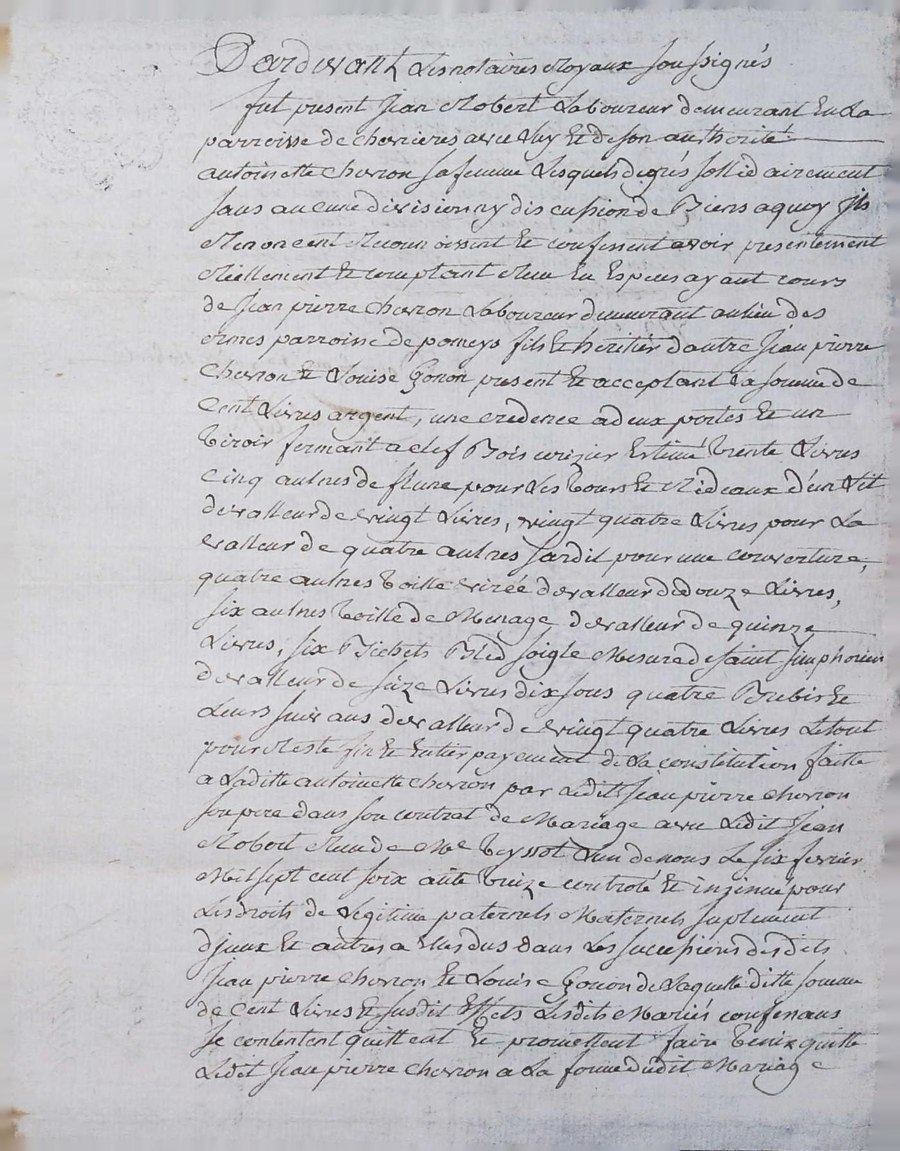 Pardevant Les notaires Royaux soussignés
fut present Jean Robert Laboureur demeurant En La
parroisse de chevrieres avec luy Et de son authorité
antoinette chevron sa femme Lesquels de grés sollidairement
sans aucune division ny discussion de Biens a quoy ils
Renoncent Reconnoissent Et confessent avoir presentement
Réellement Et comptant Reçu En Especes ayant cours
de Jean pierre chevron Laboureur demeurant au lieu des
ormes parroisse de pomeys fils Et héritier d'autre Jean pierre
Chevron Et Louise Gonon present Et acceptant La somme de
Cent Livres argent, une credence a deux portes Et un
tiroir fermant a clef Bois cerizier Estimé trente Livres
Cinq aulnes de flene pour Les tours Et Rideaux d'un Lit
de valleur de vingt Livres, vingt quatre Livres pour La
valleur de quatre aulnes sardit pour une couverture,
quatre aulnes toille virée de valleur de douze Livres,
six aulnes toille de Menage de valleur de quinze
Livres, six Bichets Bled soigle Mesure de saint simphorien
de valleur de seize Livres dix sous quatre Brebis Et
Leurs suivans de valleur de vingt quatre Livres Le tout
pour Reste fin Et Entier payement de La constitution faitte
a Laditte antoinette chevron par Ledit Jean pierre chevron
son pere dans son contrat de Mariage avec Ledit Jean
Robert Reçu de Me teyssot L'un de nous Le six fevrier
Mil sept cent soixante treize controlé Et insinué pour
Les droits de Legitime paternels Maternels suplement
d'jceux Et autres a Elles dus dans Les successions desdits
Jean pierre chevron Et Louise Gonon de Laquelle ditte somme
de Cent Livres Et susdit Effets Lesdits Mariés confessans
se contentent quittent Et promettent faire tenir quitte
Ledit Jean pierre chevron a La forme dudit Mariage